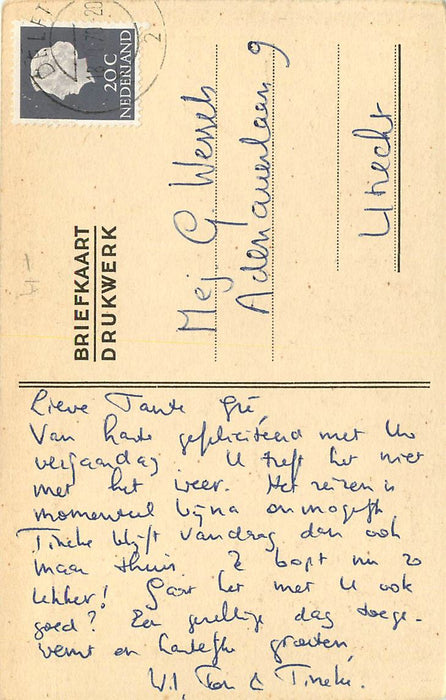 DELFT
20C
NEDERLAND
BRIEFKAART
DRUKWERK
Mej G Wessels
Adenauerlaan 9
Utrecht
Lieve Tante Gré,
Van harte gefeliciteerd met Uw
verjaardag. U treft het niet
met het weer. Het reizen is
momenteel bijna onmogelijk
Tineke blijft vandaag dan ook
maar thuis. Ze hoest nu zo
lekker! Gaat het met U ook
goed? Een gezellige dag toege-
wenst en hartelijke groeten,
Ton & Tineke.